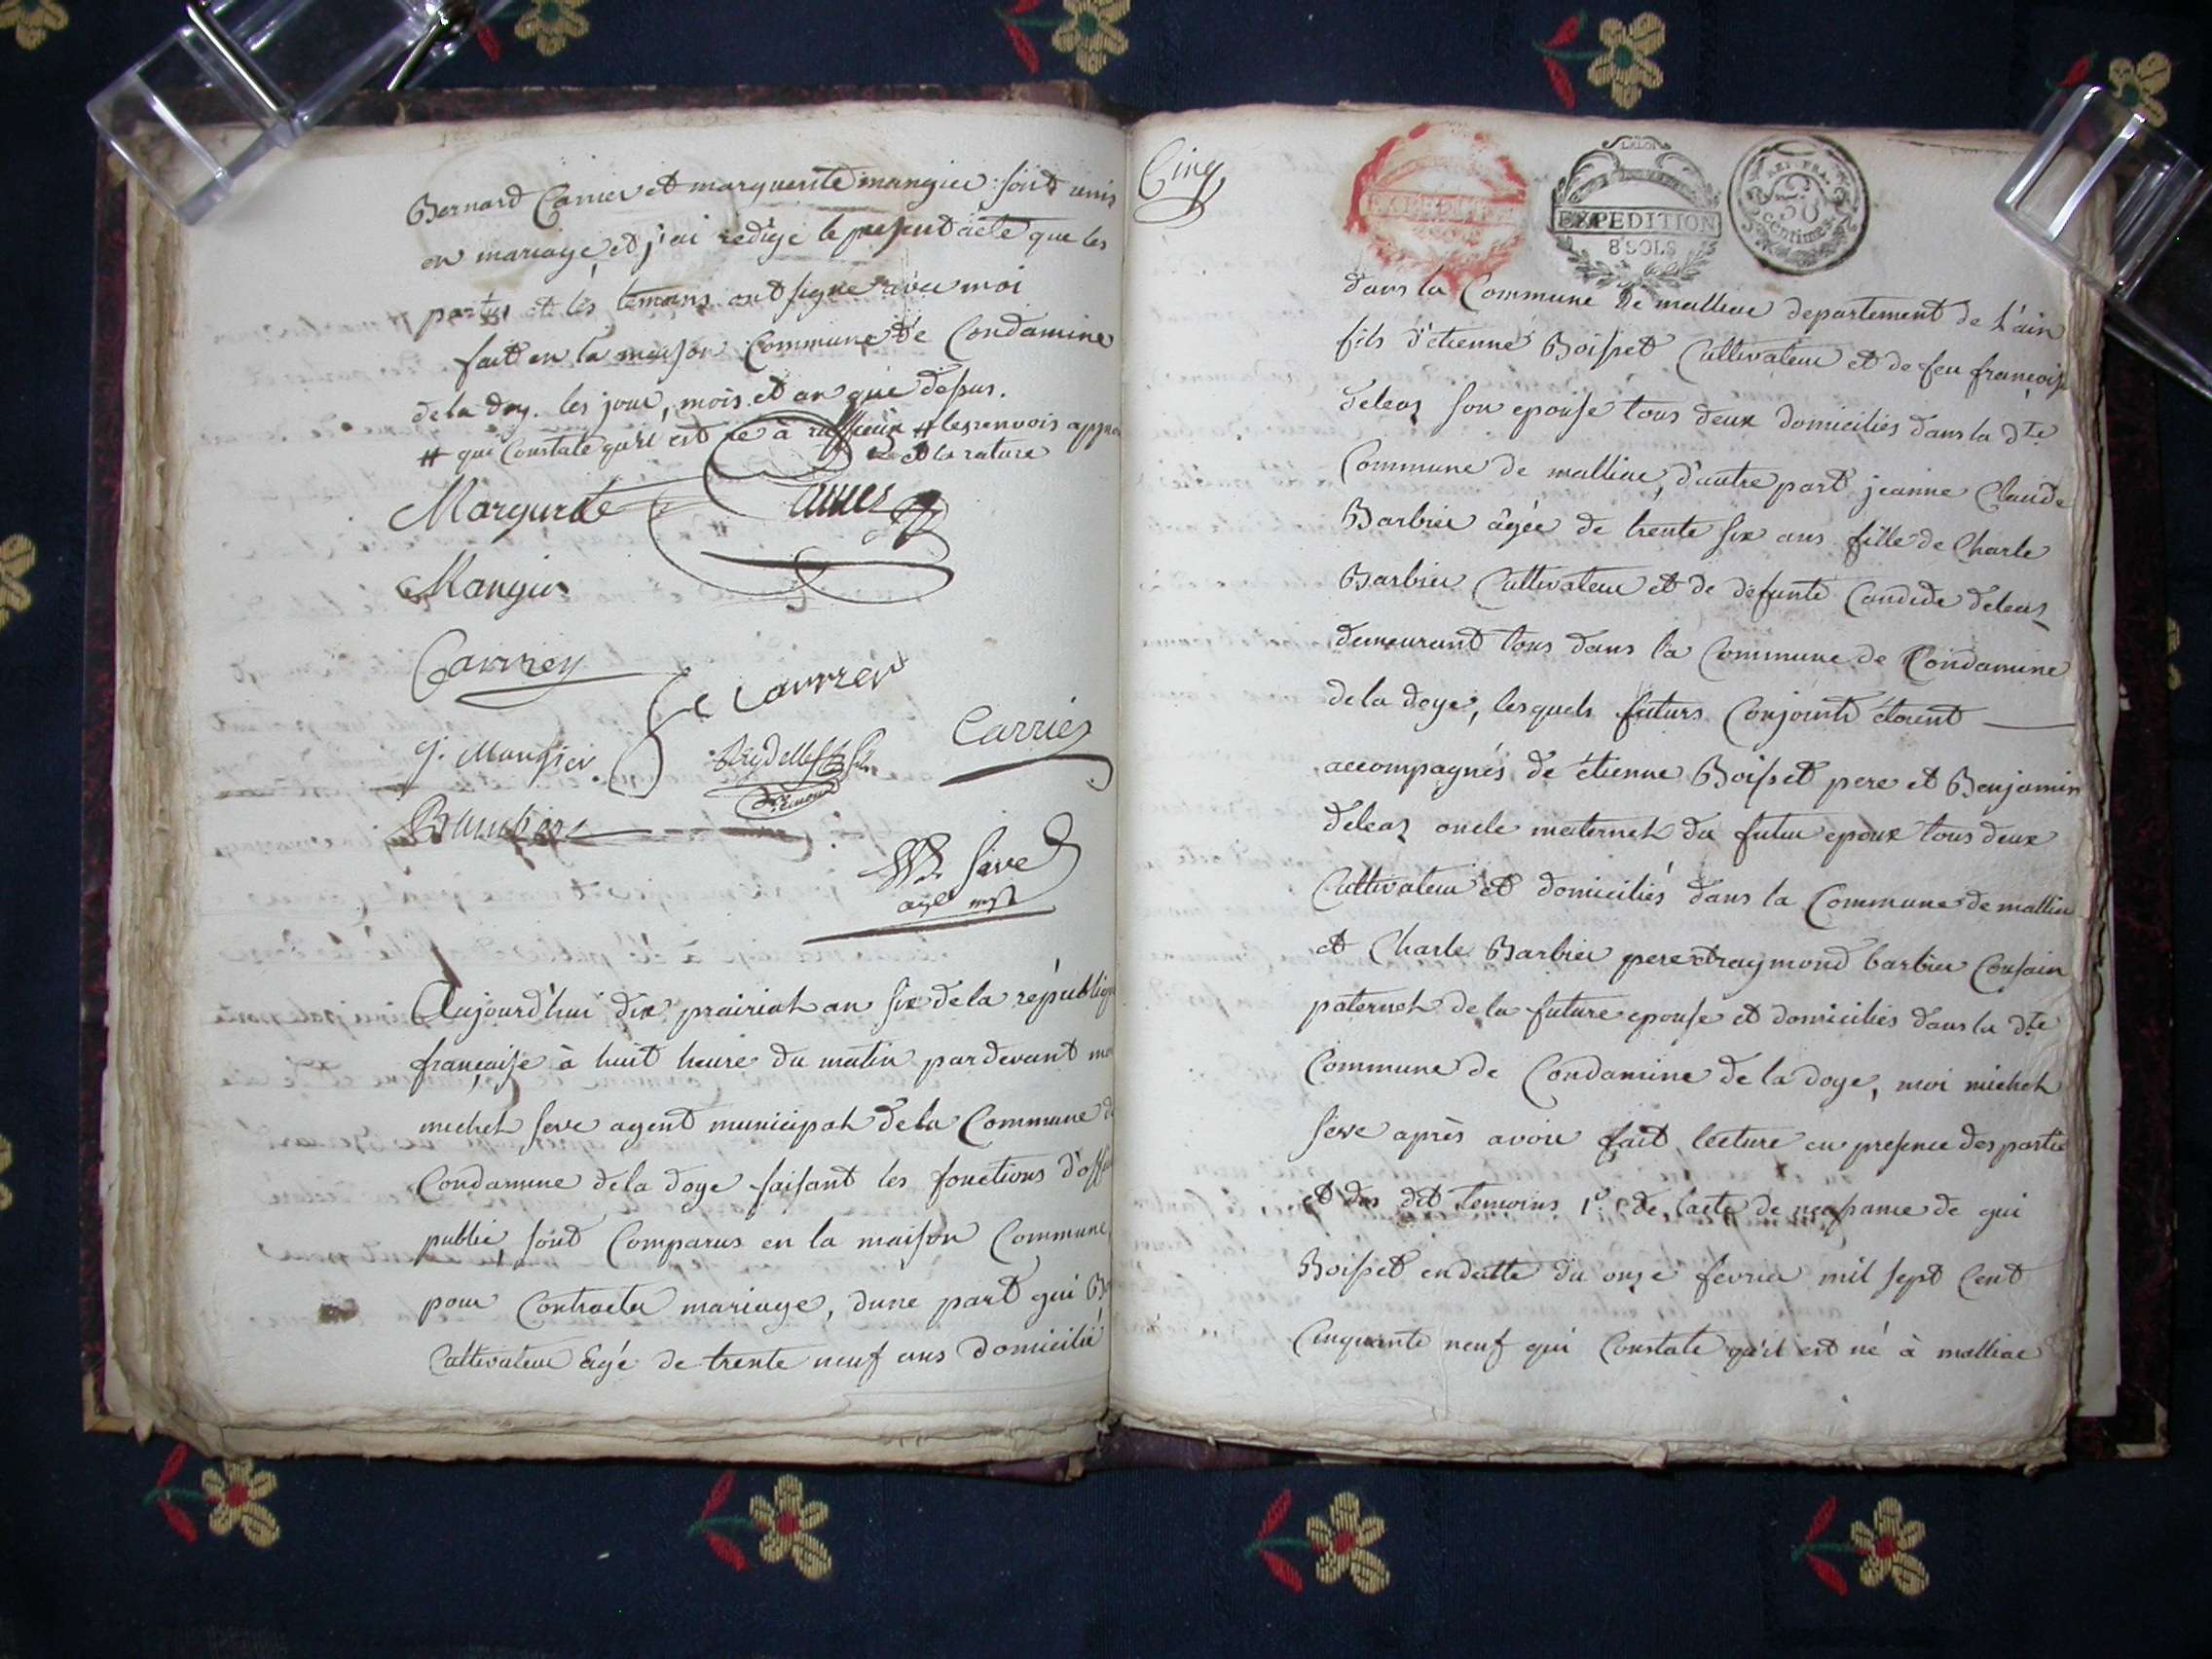 Bernard Carrier et marguerite mangier sont unis
en mariage et j'ai redigé le present acte que les
partyes et les temoins ont signé avec moi
fait en la maison Commune de Condamine
de la doy. les jour, mois et an que dessus.
# qui Constate qu'il est né à ruffieux # les renvois
et la rature
Margurite Carrier
Mangier
Carrier
Carrier
g. Mangier
Carrier
M. Seve
agt
Aujourd'hui dix prairial an six de la republique
française à huit heure du matin pardevant moi
michel seve agent municipal de la Commune de
Condamine de la doye faisant les fonctions d'off
public, sont Comparus en la maison Commune
pour Contracter mariage, dune part gui Bo
Cultivateur Agé de trente neuf ans domicilié
Cinq
EXPEDITION
LA LOI
EXPEDITION
8 SOLS
REP. FRA.
50
Centimes
dans la Commune de malliac departement de L'ain
fils d'étienne Boisset Cultivateur et de feu françoise
deleaz son epouse tous deux domiciliés dans la dte
Commune de malliac, d'autre part jeanne Claude
Barbier âgée de trente six ans fille de Charle
Barbier Cultivateur et de defunte Candide deleaz
demeurant tous dans la Commune de Condamine
de la doye, lesquels futurs Conjoints étoient
accompagnés de étienne Boisset pere et Benjamin
deleaz oncle maternel du futur epoux tous deux
Cultivateur et domiciliés dans la Commune de malliac
et Charle Barbier pere et raymond barbier Cousain
paternel de la future epouse et domiciliés dans la dte
Commune de Condamine de la doye, moi michel
seve après avoir fait lecture en presence des partie
et des dit temoins 1º. de lacte de nessance de gui
Boisset en datte du onze fevrier mil sept Cent
Cinquante neuf qui Constate qu'il est né à malliac